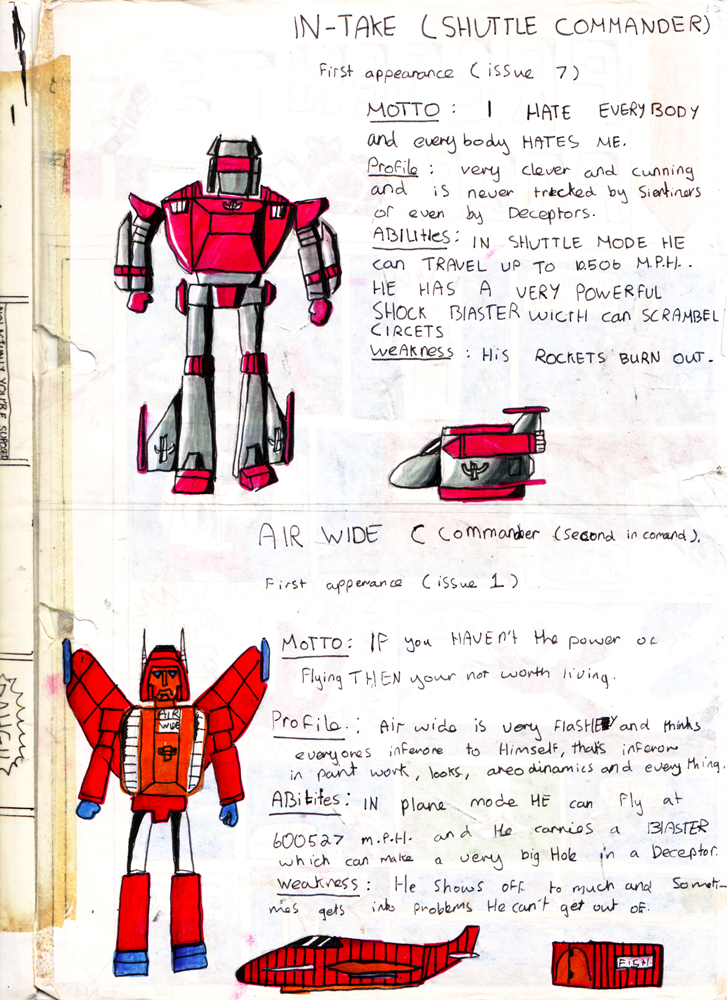 15
IN-TAKE (SHUTTLE COMMANDER)
First appearance (issue 7)
MOTTO: I HATE EVERYBODY
and everybody HATES ME.
Profile: very clever and cunning
and is never tricked by Sientiners
or even by Deceptors.
ABILITIES: IN SHUTTLE MODE HE
can TRAVEL UP TO 10.506 M.P.H..
HE HAS A VERY POWERFUL
SHOCK BLASTER WICTH can SCRAMBEL
CIRCETS
WeAkness: His ROCKETS BURN OUT.
AIR WIDE C Commander (second in comand).
First apperance (issue 1)
MOTTO: IF you HAVEN't the power of
Flying THEN your not worth living.
Profile: Air wide is very flasHEY and thinks
everyones inferore to Himself, thats inferore
in paint work, looks, areodinamics and every thing.
ABilites: IN plane mode HE can fly at
600527 m.p.H. and He carries a BlASTER
which can make a very big Hole in a Deceptor.
Weakness: He shows off to much and Someti-
mes gets into problems He can't get out of.
AIR
WIDE